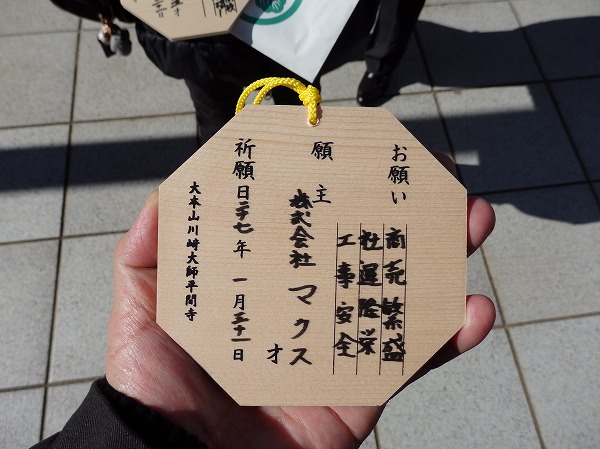 お願い
商売繁盛
社運隆栄
工事安全
願主
株式会社 マクス
才
祈願日 二十七年 一月三十一日
大本山川崎大師平間寺